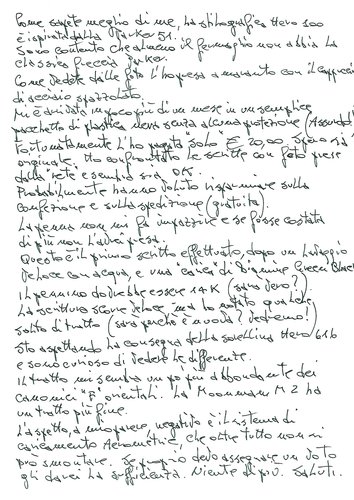 Come sapete meglio di me, la stilografica Hero 100
è ispirata dalla Parker 51.
Sono contento che almeno il fermaglio non abbia la
classica freccia Parker.
Come vedete dalle foto l'ho presa amaranto con il cappuccio
di acciaio spazzolato.
Mi è arrivata in poco più di un mese in un semplice
pacchetto di plastica nera senza alcuna protezione (Assurdo!)
Fortunatamente l'ho pagata solo € 20,00 Spero sia
originale. Ho confrontato le scritte con foto prese
dalla rete e sembra sia OK.
Probabilmente hanno voluto risparmiare sulla
confezione e sulla spedizione (gratuita).
La penna non mi fa impazzire e se fosse costata
di più non l'avrei presa.
Questo è il primo scritto effettuato, dopo un lavaggio
veloce con acqua, e una carica di Diamine Green Black
Il pennino dovrebbe essere 14K (sarà vero?).
La scrittura scorre veloce, ma ho notato qualche
salto di tratto (sarà perché è nuova? Vedremo!)
Sto aspettando la consegna della sorellina Hero 616
e sono curioso di vederle le differenze.
Il tratto mi sembra un po' più abbondante dei
canonici "F" orientali. La Moonman M2 ha
un tratto più fine.
L'aspetto, a mio parere, negativo è il sistema di
caricamento Aerometric, che oltre tutto non si
può smontare. Se proprio devo assegnare un voto
gli darei la sufficienza. Niente di più. Saluti.